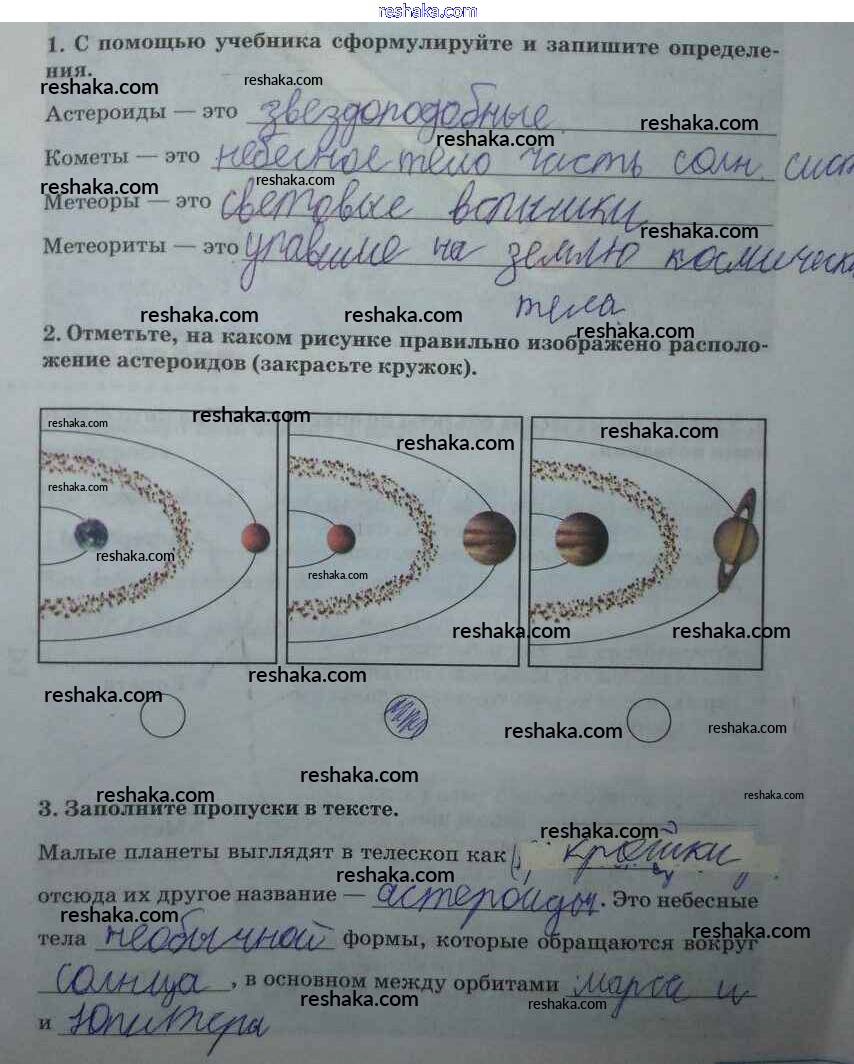 reshaka.com
1. С помощью учебника сформулируйте и запишите определе-
ния.
reshaka.com reshaka.com
Астероиды — это звездоподобные reshaka.com
reshaka.com
Кометы — это небесное тело часть солн. сист
reshaka.com reshaka.com
Метеоры — это световые вспышки
reshaka.com
Метеориты — это упавшие на землю космически
тела
reshaka.com reshaka.com reshaka.com
2. Отметьте, на каком рисунке правильно изображено располо-
жение астероидов (закрасьте кружок).
reshaka.com reshaka.com reshaka.com reshaka.com
reshaka.com
reshaka.com
reshaka.com
reshaka.com reshaka.com
reshaka.com
reshaka.com reshaka.com reshaka.com
reshaka.com
reshaka.com reshaka.com
3. Заполните пропуски в тексте.
reshaka.com
Малые планеты выглядят в телескоп как крошки
reshaka.com
отсюда их другое название — астероиды. Это небесные
reshaka.com reshaka.com
тела необычной формы, которые обращаются вокруг
солнца, в основном между орбитами марса и
reshaka.com reshaka.com
и Юпитера